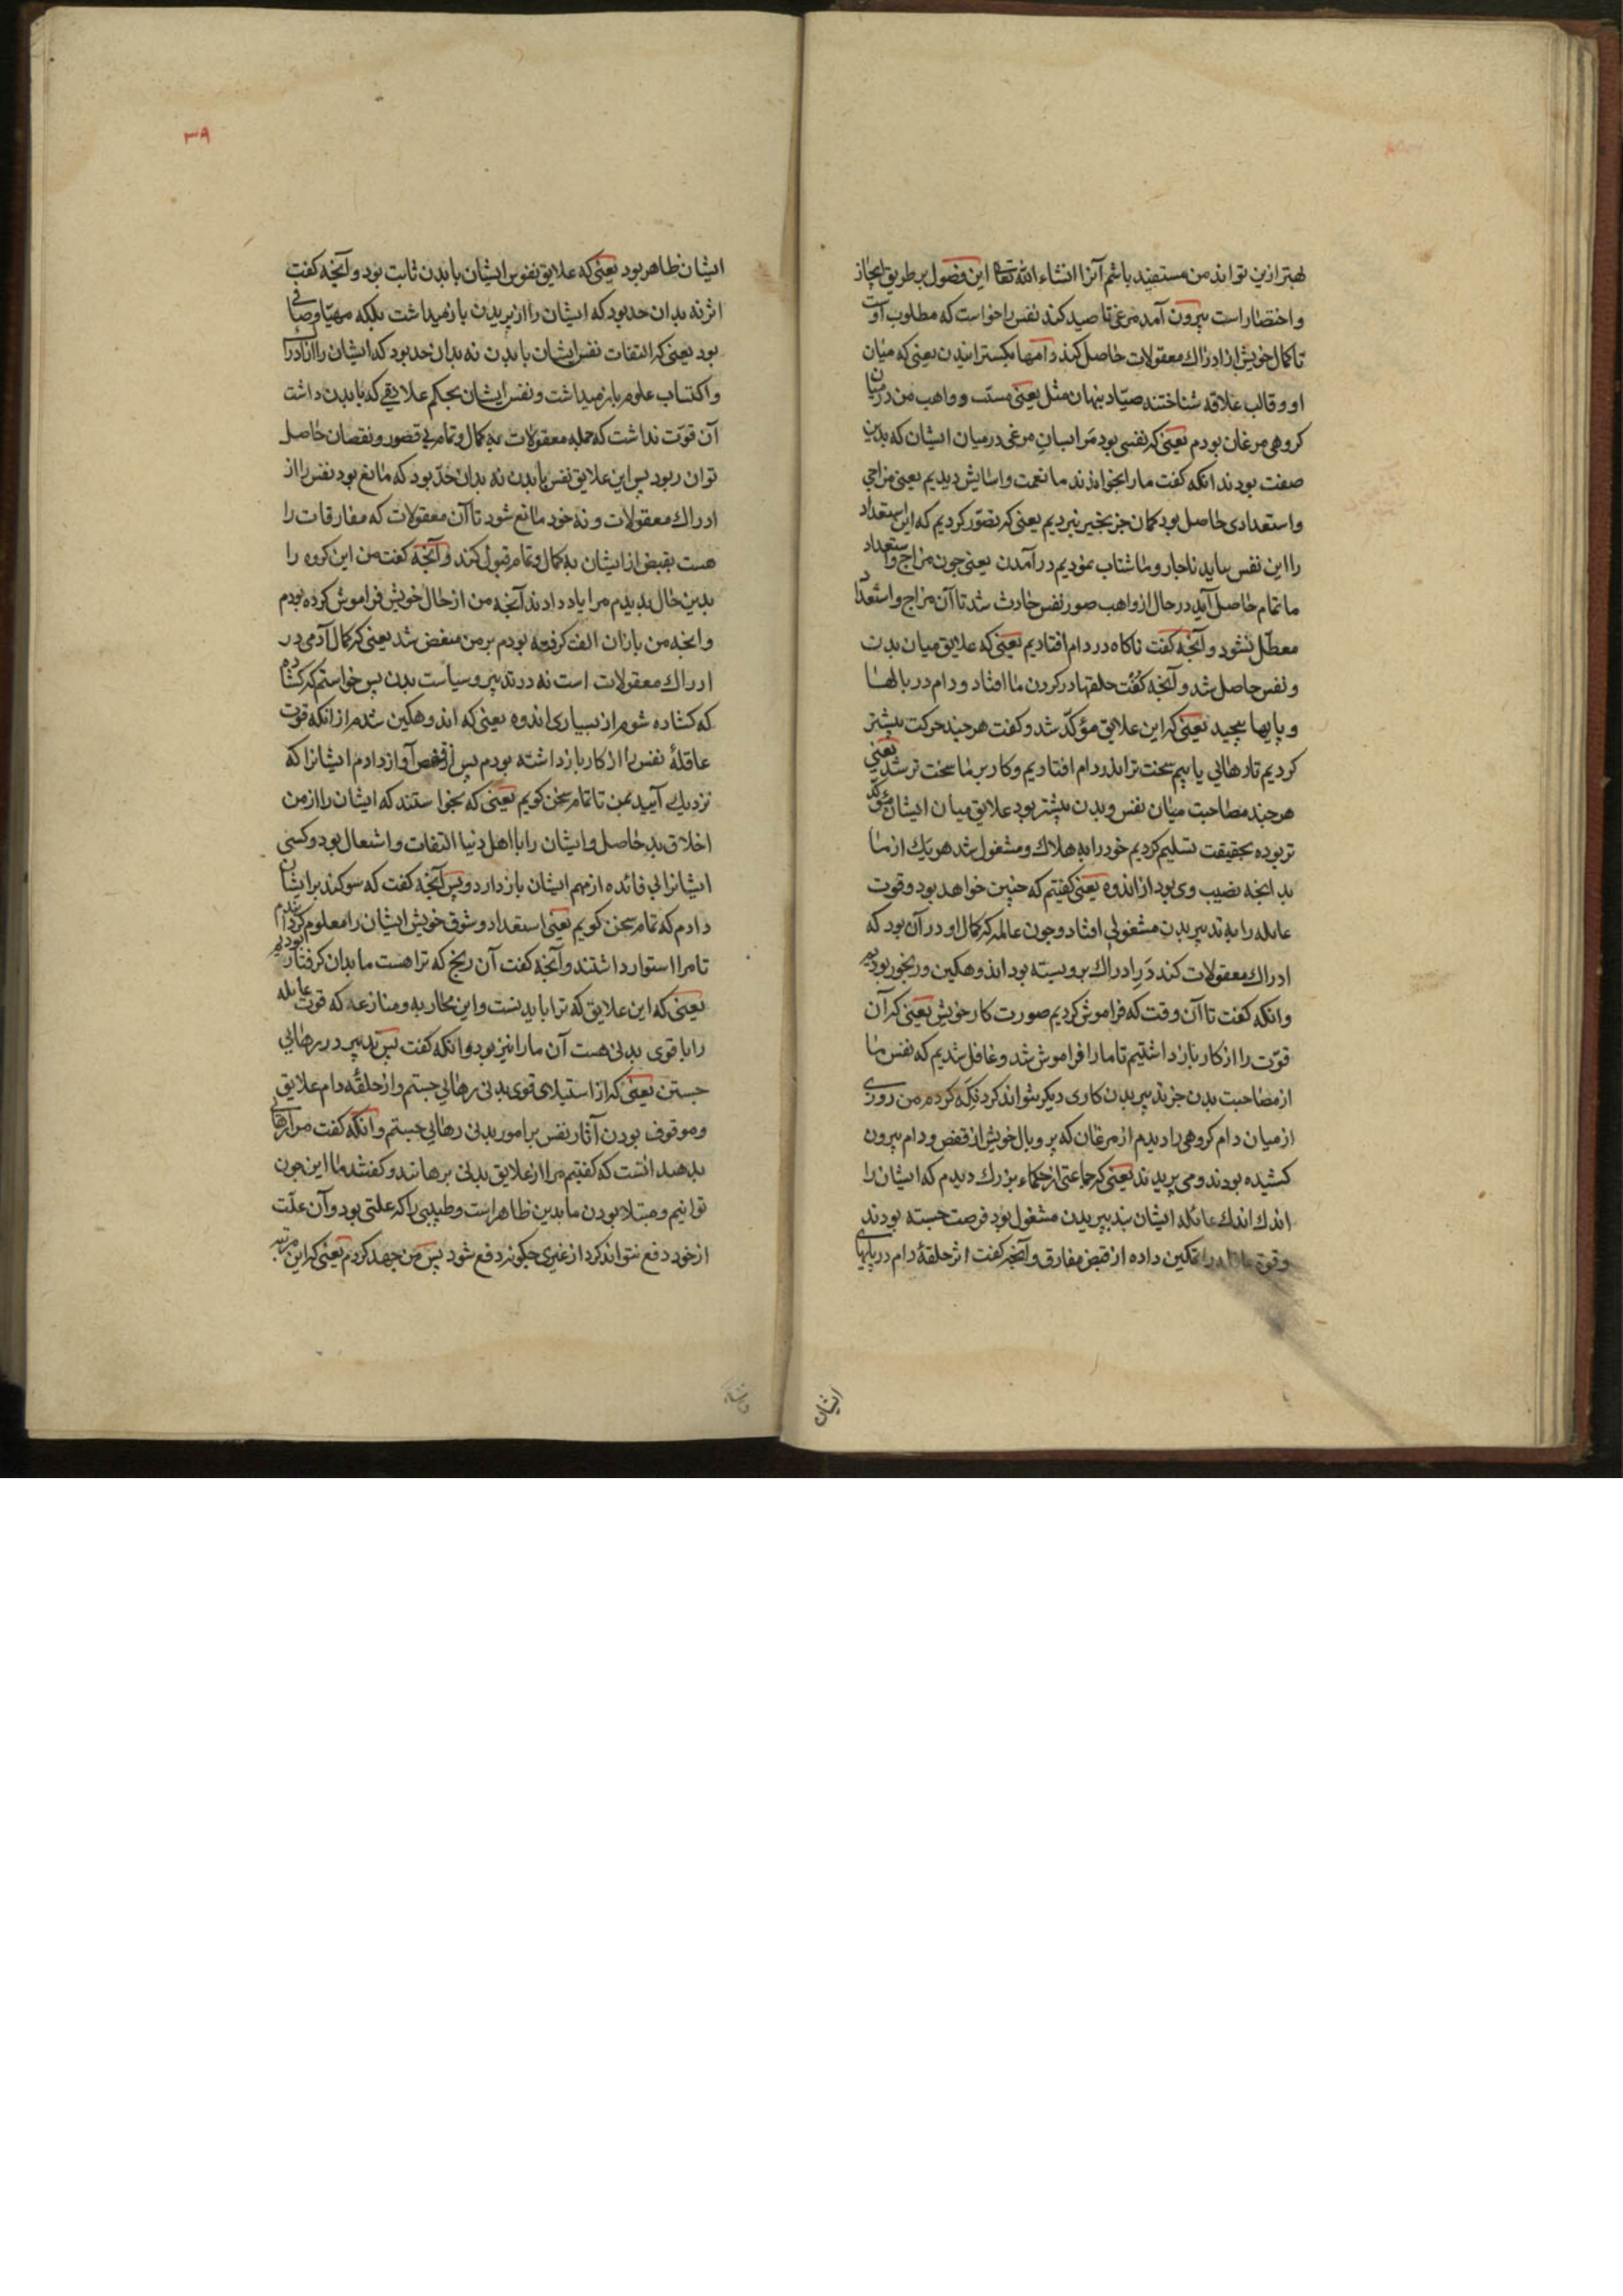 بهتر ازین تواند من مستفید باشم آنرا انشاء الله تعالی این فصول بر طریق ایجاز
و اختصار است بیرون آمد مرغی تا صید کند نفس را خواست که مطلوب اوست
تا کمال خویش از ادراک معقولات حاصل کند دامها بکسترانیدن یعنی که میان
او و قالب علاقه شناختند صیاد پنهان مثل یعنی مسبب و واهب من در میان
کروهی مرغان بودم یعنی که نفسی بود مرا بسان مرغی در میان ایشان که بدین
صفت بودند انکه کفت ما را بخواندند ما نعمت و اسایش دیدیم یعنی مزاجی
و استعدادی حاصل بود کمان جز بخیر نبردیم یعنی که تصور کردیم که این استعداد
را این نفس بباید ناجار و ما شتاب نمودیم در آمدن یعنی جون مزاج و استعداد
ما تمام حاصل آید در حال از واهب صور نفس حادث شد تا آن مزاج و استعداد
معطل نشود و آنجه کفت ناکاه در دام افتادیم یعنی که علایق میان بدن
و نفس حاصل شد و آنجه کفت حلقها در کردن ما افتاد و دام در بالها
و پایها پیجید یعنی که این علایق مؤکد شد و کفت هر جند حرکت بیشتر
کردیم تا رهائی یابیم سخت تر اندر دام افتادیم و کار بر ما سخت تر شد یعنی
هر جند مصاحبت میان نفس و بدن بیشتر بود علایق میان ایشان مؤکد
تر بوده بحقیقت تسلیم کردیم خود را به هلاک و مشغول شد هر یک از ما
بد انجه نصیب وی بود از اندوه یعنی کفتیم که جنین خواهد بود و قوت
عامله را به تدبیر بدن مشغولی افتاد و جون عالمه که کمال او در آن بود که
ادراک معقولات کند در ادراک برو بسته بود اندوهکین و رنجور بودیم
و انکه کفت تا آن وقت که فراموش کردیم صورت کار خویش یعنی که آن
قوت را از کار باز داشتیم تا ما را فراموش شد و غافل شدیم که نفس ما
از مصاحبت بدن جز تدبیر بدن کاری دیکر بتواند کرد نکه کردم من روزی
از میان دام کروهی را دیدم از مرغان که پر و بال خویش از قفص و دام بیرون
کشیده بودند و می پریدند یعنی که جماعتی از حکماء بزرک دیدم که ایشان را
اندک اندک عامله ایشان بتدبیر بدن مشغول بود فرصت جسته بودند
و قوة تمکین داده از قبض مفارق و آنجه کفت اثر حلقهٔ دام در پایهای
ایشان
۳۹
ایشان ظاهر بود یعنی که علایق نفوس ایشان با بدن ثابت بود و آنجه کفت
اثر نه بدان حد بود که ایشان را از پریدن باز نمیداشت بلکه مهیا و صافی
بود یعنی که التفات نفس ایشان با بدن نه بدان حد بود که ایشان را از ادراک
و اکتساب علوم باز نمیداشت و نفس ایشان بحکم علایقی که با بدن داشت
آن قوت نداشت که جمله معقولات به کمال و تمام بی قصور و نقصان حاصل
توان ربود پس این علایق نفس با بدن نه بدان حد بود که مانع بود نفس را از
ادراک معقولات و نه خود مانع شود تا آن معقولات که مفارقات را
هست بقبض از ایشان به کمال و تمام قبول کند و آنجه کفت من این کروه را
بدین حال بدیدم مرا یاد دادند آنجه من از حال خویش فراموش کرده بودم
و انجه من با زان الفت کرفته بودم بر من منغض شد یعنی که کمال آدمی در
ادراک معقولات است نه در تدبیر و سیاست بدن پس خواستم که کشاده
که کشاده شوم از بسیاری اندوه یعنی که اندوهکین شدم از انکه قوت
عاقلهٔ نفس را از کار باز داشته بودم پس از قفص آواز دادم ایشانرا که
نزدیک آیید بمن تا تمام سخن کویم یعنی که بخواستند که ایشان را از من
اخلاق بد حاصل و ایشان را با اهل دنیا التفات و اشتغال بود و کسی
ایشانرا بی فائده از مهم ایشان باز دارد و پس آنجه کفت که سوکند بر ایشان
دادم که تمام سخن کویم یعنی استعداد و شوق خویش ایشان را معلوم کردانیدم
تا مرا استوار داشتند و آنجه کفت آن رنج که ترا هست ما بدان کرفتار بودیم
یعنی که این علایق که ترا با بدنست و این محاربه و منازعه که قوت عامله
را با قوی بدنی هست آن ما را نیز بود و انکه کفت پس تدبیر در رهایی
جستن یعنی که از استیلای قوی بدنی رهائی جستم و از حلقهٔ دام علایق
و موقوف بودن آثار نفس بر امور بدنی رهائی جستم و انکه کفت مرا رهائی
بدهید انست که کفتیم مرا از علایق بدنی برهانند و کفتند ما این جون
توانیم و مبتلا بودن ما بدین ظاهر است و طبیبی را که علتی بود و آن علت
از خود دفع نتواند کرد از غیری جکونه دفع شود پس من جهد کردم یعنی که این مرتبه